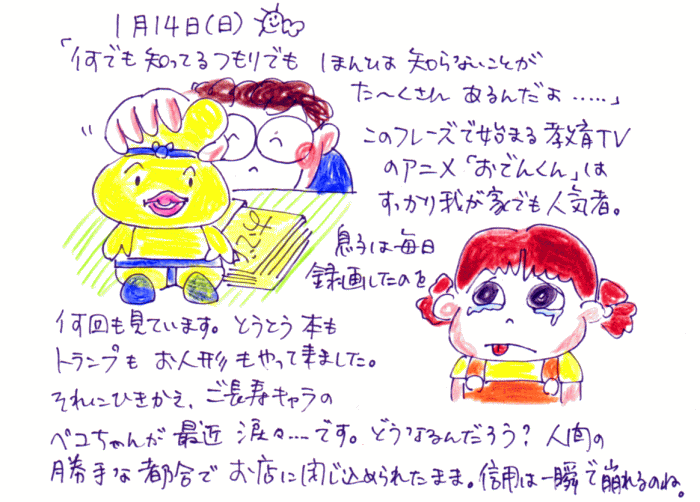 1月14日(日)
「何でも知ってるつもりでも ほんとは知らないことが
た〜くさん あるんだよ……」
このフレーズで始まる教育TV
のアニメ「おでんくん」は
すっかり我が家でも人気者。
息子は毎日
録画したのを
何回も見ています。とうとう本も
トランプもお人形もやって来ました。
それにひきかえ、ご長寿キャラの
ペコちゃんが最近 涙々……です。どうなるんだろう? 人間の
勝手な都合でお店に閉じ込められたまま。信用は一瞬で崩れるのね。